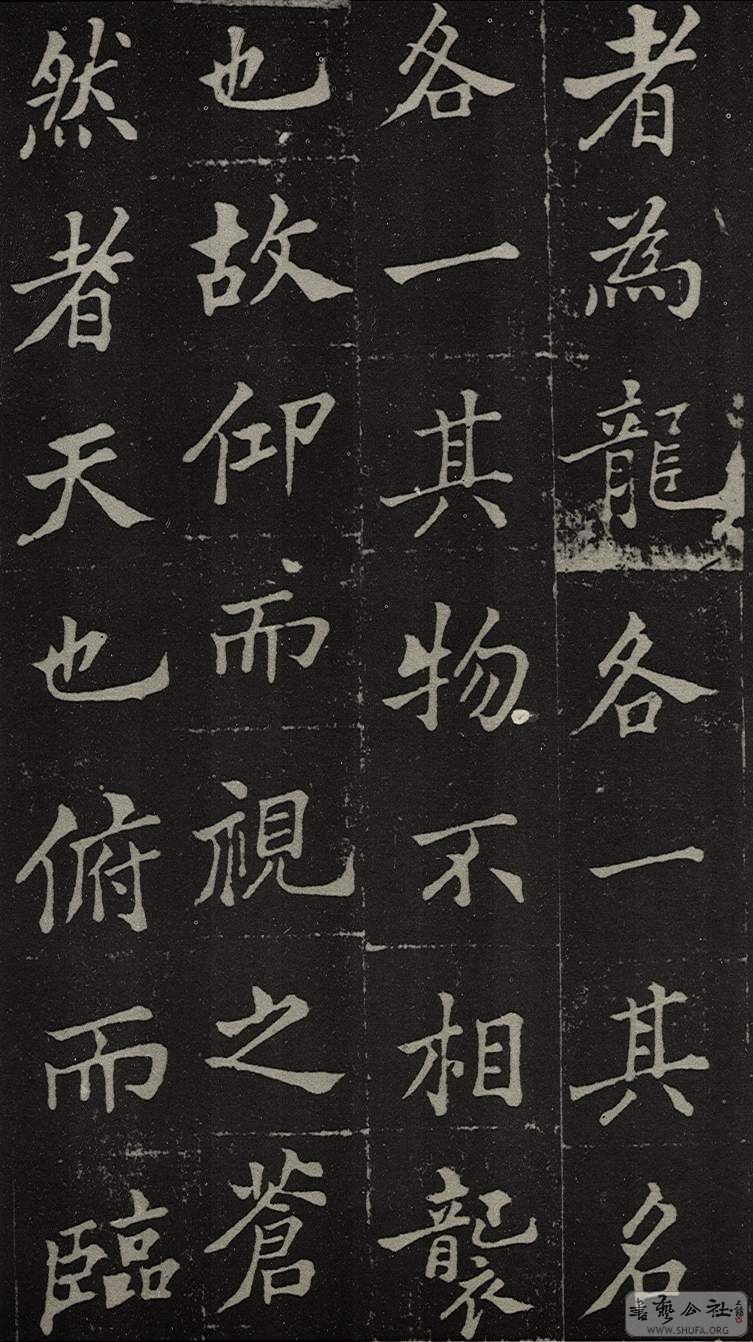 者為龍各一其名
各一其物不相襲
也故仰而視之蒼
然者天也俯而臨
書艺公社
WWW.SHUFA.ORG